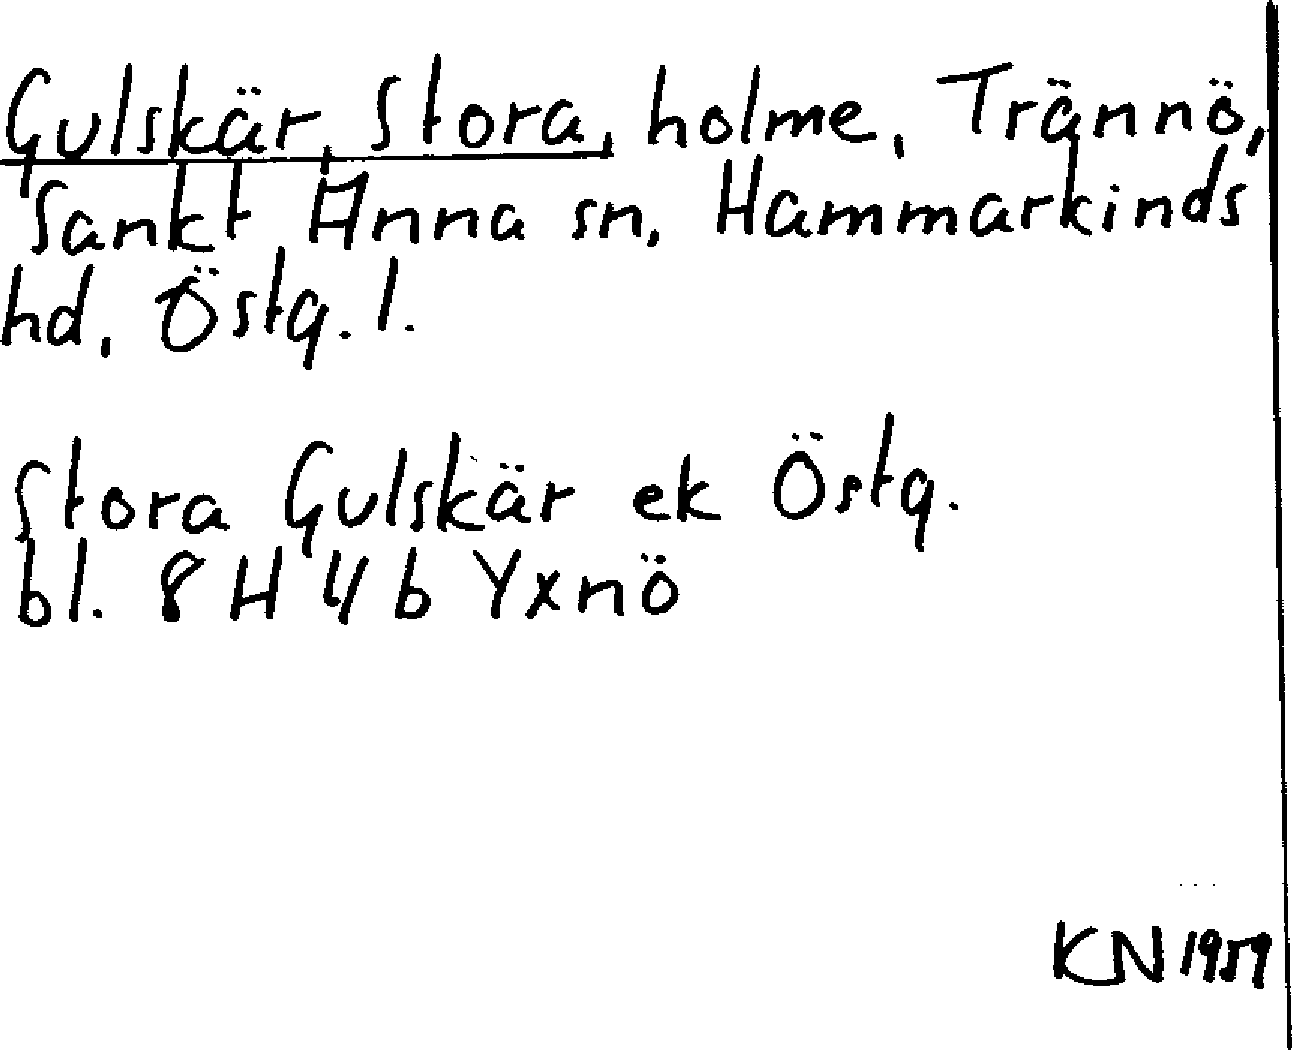 Gulskär, Stora, holme, Trännö,
Sankt Anna sn, Hammarkinds
hd, Östg. l.
Stora Gulskär ek Östg.
bl. 8 H 4 b Yxnö
KN 1959